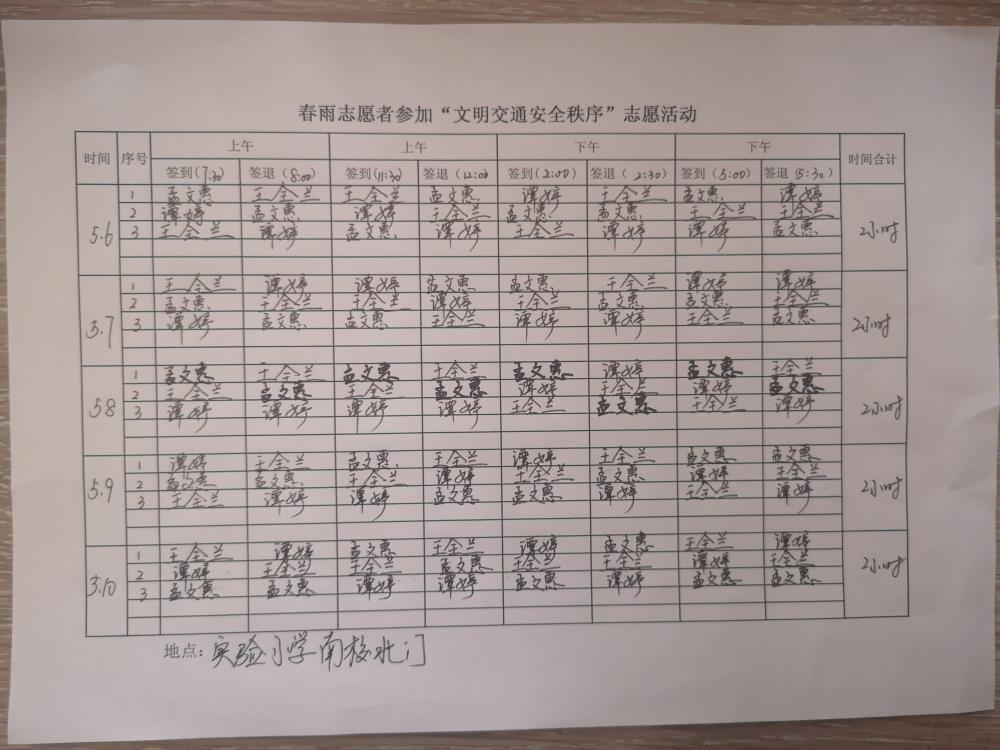 春雨志愿者参加“文明交通安全秩序”志愿活动
时间 序号 上午 上午 下午 下午 时间合计
签到(7:30) 签退(8:00) 签到(11:30) 签退(12:00) 签到(2:00) 签退(2:30) 签到(5:00) 签退(5:30)
5.6 2小时
1 孟文惠 王全兰 王全兰 孟文惠 谭婷 王全兰 孟文惠 谭婷
2 谭婷 孟文惠 谭婷 王全兰 孟文惠 孟文惠 王全兰 王全兰
3 王全兰 谭婷 孟文惠 谭婷 王全兰 谭婷 谭婷 孟文惠
5.7 2小时
1 王全兰 谭婷 谭婷 孟文惠 孟文惠 王全兰 谭婷 谭婷
2 孟文惠 王全兰 王全兰 谭婷 王全兰 孟文惠 孟文惠 王全兰
3 谭婷 孟文惠 孟文惠 王全兰 谭婷 谭婷 王全兰 孟文惠
58 2小时
1 孟文惠 王全兰 孟文惠 王全兰 孟文惠 谭婷 孟文惠 王全兰
2 王全兰 孟文惠 王全兰 孟文惠 谭婷 王全兰 谭婷 孟文惠
3 谭婷 谭婷 谭婷 谭婷 王全兰 孟文惠 王全兰 谭婷
5.9 2小时
1 谭婷 王全兰 孟文惠 王全兰 谭婷 王全兰 孟文惠 孟文惠
2 孟文惠 孟文惠 王全兰 谭婷 王全兰 孟文惠 谭婷 王全兰
3 王全兰 谭婷 谭婷 孟文惠 孟文惠 谭婷 王全兰 谭婷
5.10 2小时
1 王全兰 谭婷 孟文惠 王全兰 谭婷 孟文惠 王全兰 谭婷
2 谭婷 王全兰 王全兰 孟文惠 王全兰 王全兰 谭婷 王全兰
3 孟文惠 孟文惠 谭婷 谭婷 孟文惠 谭婷 孟文惠 孟文惠
地点：实验小学南校北门